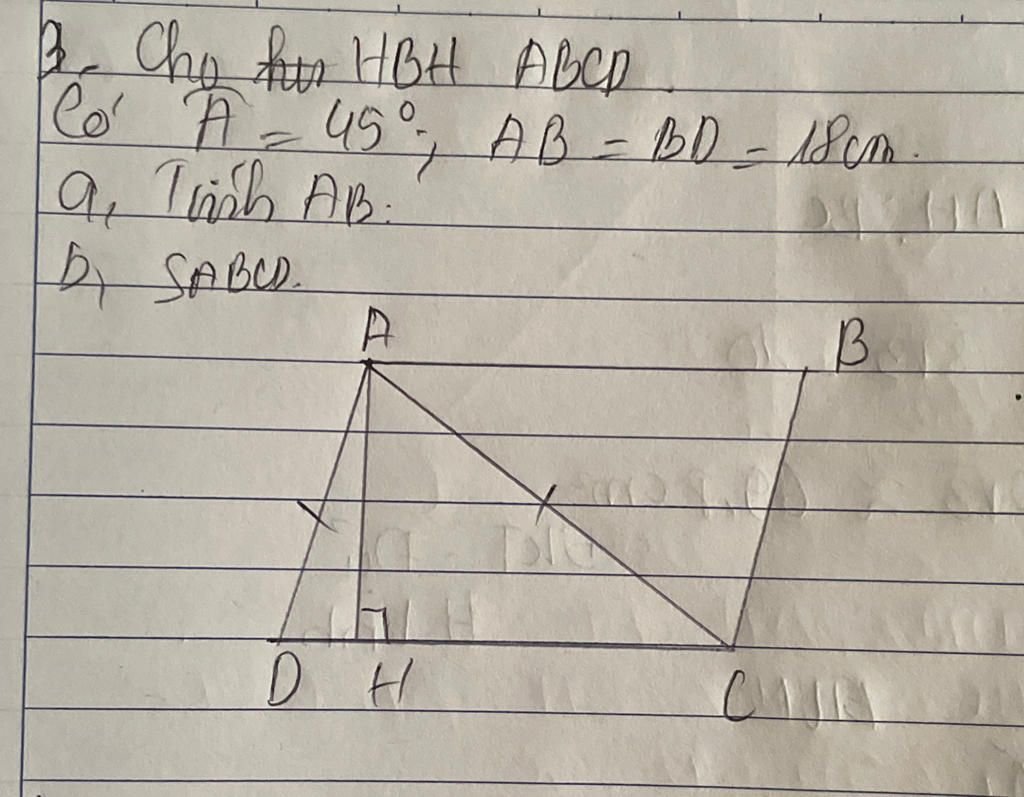 3. Cho HBH ABCD.
Có Â = 45°; AB = BD = 18cm.
a, Tính AB.
b, SABCD.
A
B
D H C